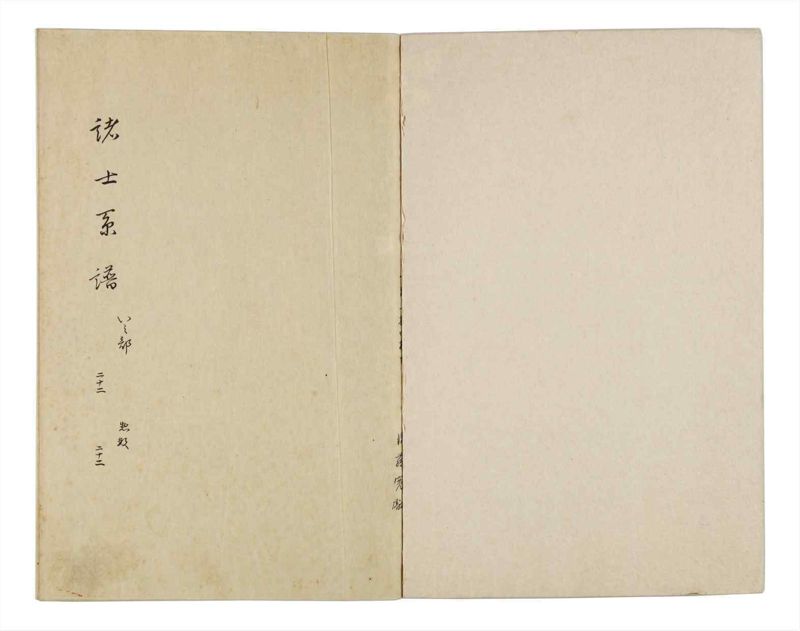 諸士系譜
いノ部
二十二
惣数
二十二